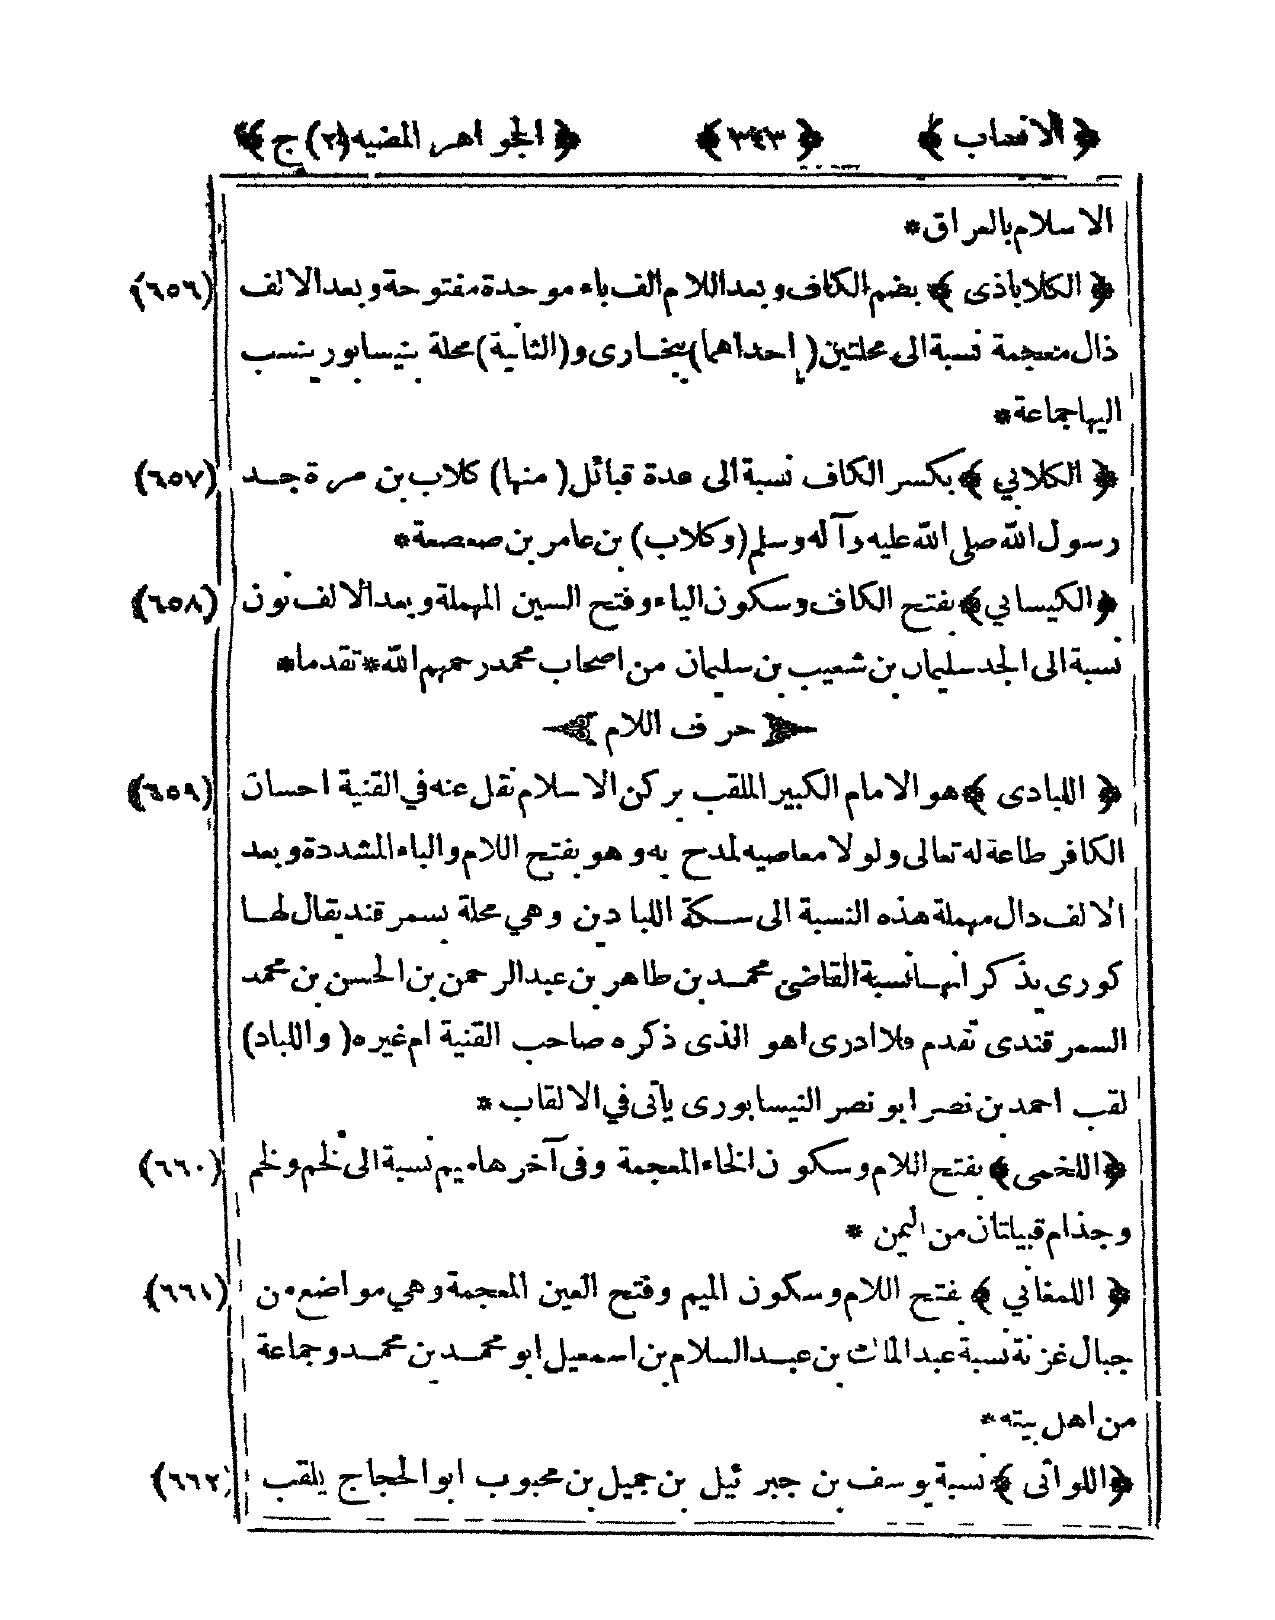 ﴿الانساب﴾ ﴿٣٤٣﴾ ﴿الجواهر المضيه(٢)ج﴾
الاسلام بالعراق*
﴿الكلاباذى﴾ بضم الكاف وبعد اللام الف باء موحدة مفتوحة وبعد الالف (٦٥٦)
ذال معجمة نسبة الى محلتين (احداهما) ببخارى و(الثانية) محلة بنيسابور ينسب
اليها جماعة*
﴿الكلابي﴾ بكسر الكاف نسبة الى عدة قبائل (منها) كلاب بن مرة جد (٦٥٧)
رسول الله صلى الله عليه وآله وسلم (وكلاب) بن عامر بن صعصعة*
﴿الكيساني﴾ بفتح الكاف وسكون الياء وفتح السين المهملة وبعد الالف نون (٦٥٨)
نسبة الى الجد سليمان بن شعيب بن سليمان من اصحاب محمد رحمهم الله* تقدما*
حرف اللام
﴿اللبادى﴾ هو الامام الكبير الملقب بركن الاسلام نقل عنه في القنية احسان (٦٥٩)
الكافر طاعة له تعالى ولولا معاصيه لمدح به وهو بفتح اللام والباء المشددة وبعد
الالف دال مهملة هذه النسبة الى سكة اللبادين وهي محلة بسمرقند يقال لها
كورى يذكر انها نسبة القاضى محمد بن طاهر بن عبد الرحمن بن الحسن بن محمد
السمرقندى تقدم فلا ادرى اهو الذى ذكره صاحب القنية ام غيره (واللباد)
لقب احمد بن نصر ابو نصر النيسابورى يأتى في الالقاب*
﴿اللخمى﴾ بفتح اللام وسكون الخاء المعجمة وفى آخرها ميم نسبة الى لخم ولخم (٦٦٠)
وجذام قبيلتان من اليمن *
﴿اللمغاني﴾ بفتح اللام وسكون الميم وفتح الغين المعجمة وهي مواضع من (٦٦١)
جبال غزنة نسبة عبد الملك بن عبد السلام بن اسمعيل ابو محمد بن محمد وجماعة
من اهل بيته*
﴿اللواتى﴾ نسبة يوسف بن جبرئيل بن جميل بن محبوب ابو الحجاج يلقب (٦٦٢)